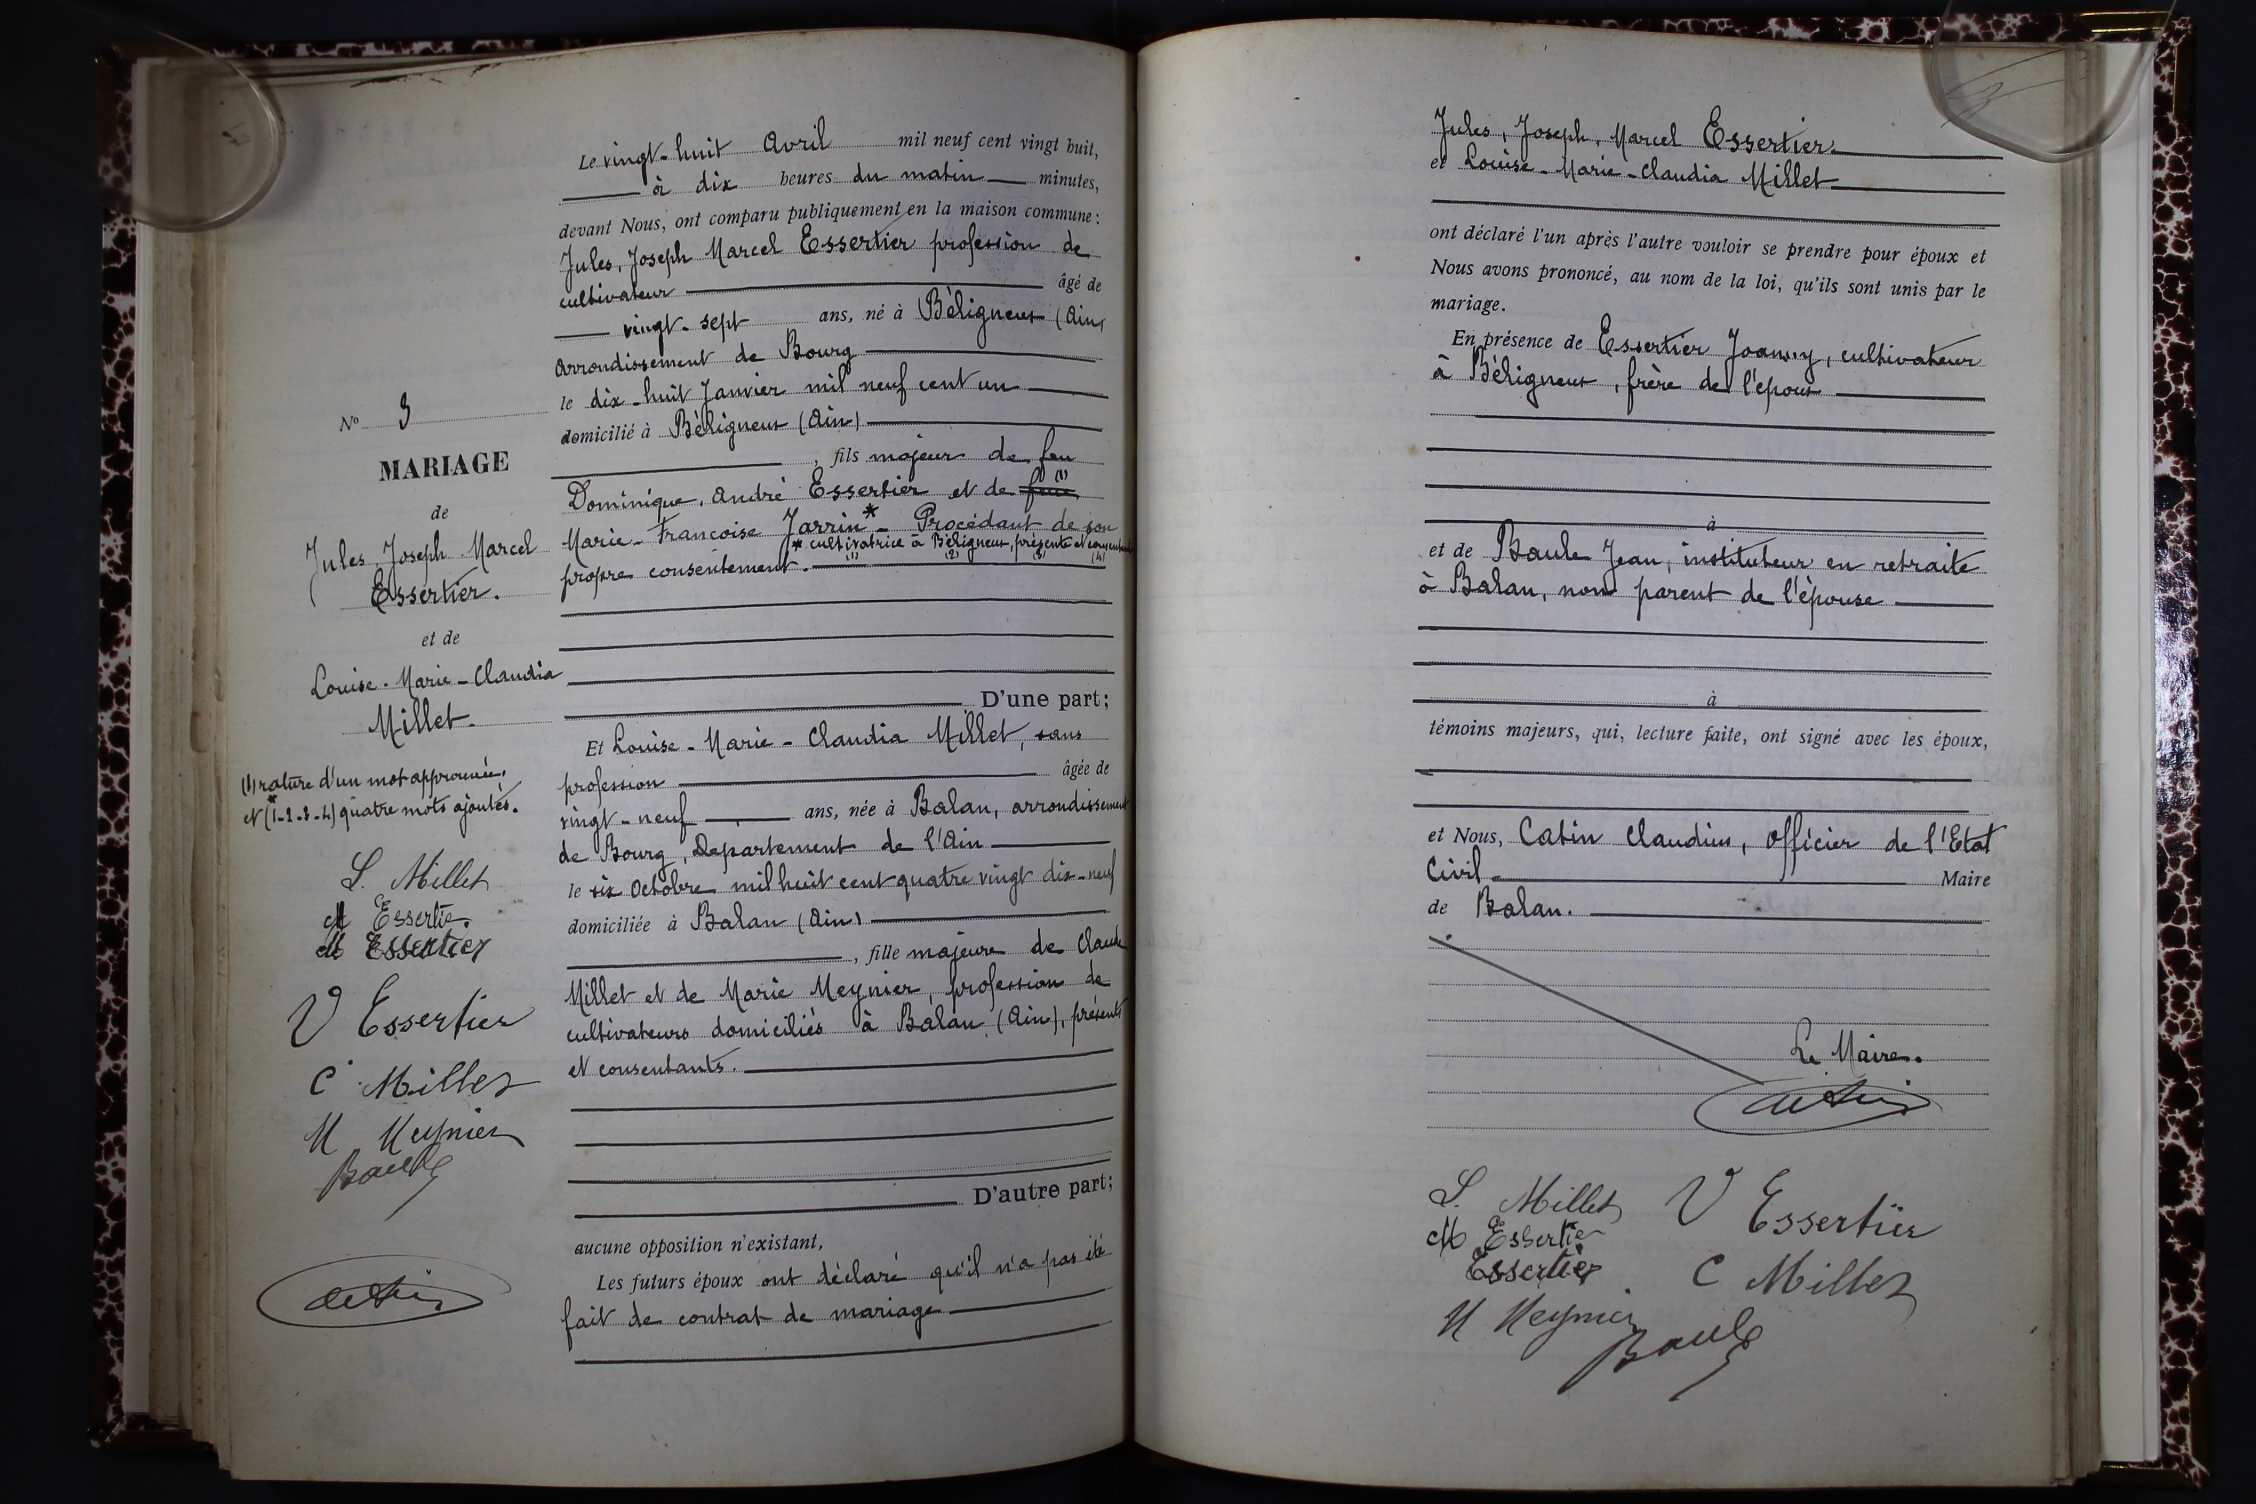 Le vingt-huit Avril mil neuf cent vingt huit,
à dix heures du matin minutes,
devant Nous, ont comparu publiquement en la maison commune :
Jules, Joseph Marcel Essertier profession de
cultivateur âgé de
vingt-sept ans, né à Béligneux (Ain)
arrondissement de Bourg
le dix-huit Janvier mil neuf cent un
domicilié à Béligneux (Ain)
, fils majeur de feu
Dominique, André Essertier et de feue (1)
Marie-Francoise Jarrin* - Procédant de son
* cultivatrice à Béligneux, présente et consentante
(1) (2) (3) (4)
propre consentement.
D'une part;
Et Louise-Marie-Claudia Millet, sans
profession âgée de
vingt-neuf ans, née à Balan, arrondissement
de Bourg, Departement de l'Ain
le six Octobre mil huit cent quatre vingt dix-neuf
domiciliée à Balan (Ain)
, fille majeure de Claude
Millet et de Marie Meynier, profession de
cultivateurs domiciliés à Balan (Ain), présents
et consentants.
D'autre part;
aucune opposition n'existant,
Les futurs époux ont déclaré qu'il n'a pas été
fait de contrat de mariage
No 3
MARIAGE
de
Jules, Joseph Marcel
Essertier.
et de
Louise-Marie-Claudia
Millet.
(1) rature d'un mot approuvée,
et *(1-2-3-4) quatre mots ajoutés.
L. Millet
M Essertier
M Essertier
V Essertier
C Millet
M Meynier
Baule
Jules, Joseph, Marcel Essertier
et Louise-Marie-Claudia Millet
ont déclaré l'un après l'autre vouloir se prendre pour époux et
Nous avons prononcé, au nom de la loi, qu'ils sont unis par le
mariage.
En présence de Essertier Joanny, cultivateur
à Béligneux, frère de l'époux
à
et de Baule Jean, instituteur en retraite
à Balan, non parent de l'épouse
à
témoins majeurs, qui, lecture faite, ont signé avec les époux,
et Nous, Catin Claudius, Officier de l'Etat
Civil Maire
de Balan.
Le Maire.
L. Millet V Essertier
M Essertier
Essertier C Millet
M Meynier
Baule